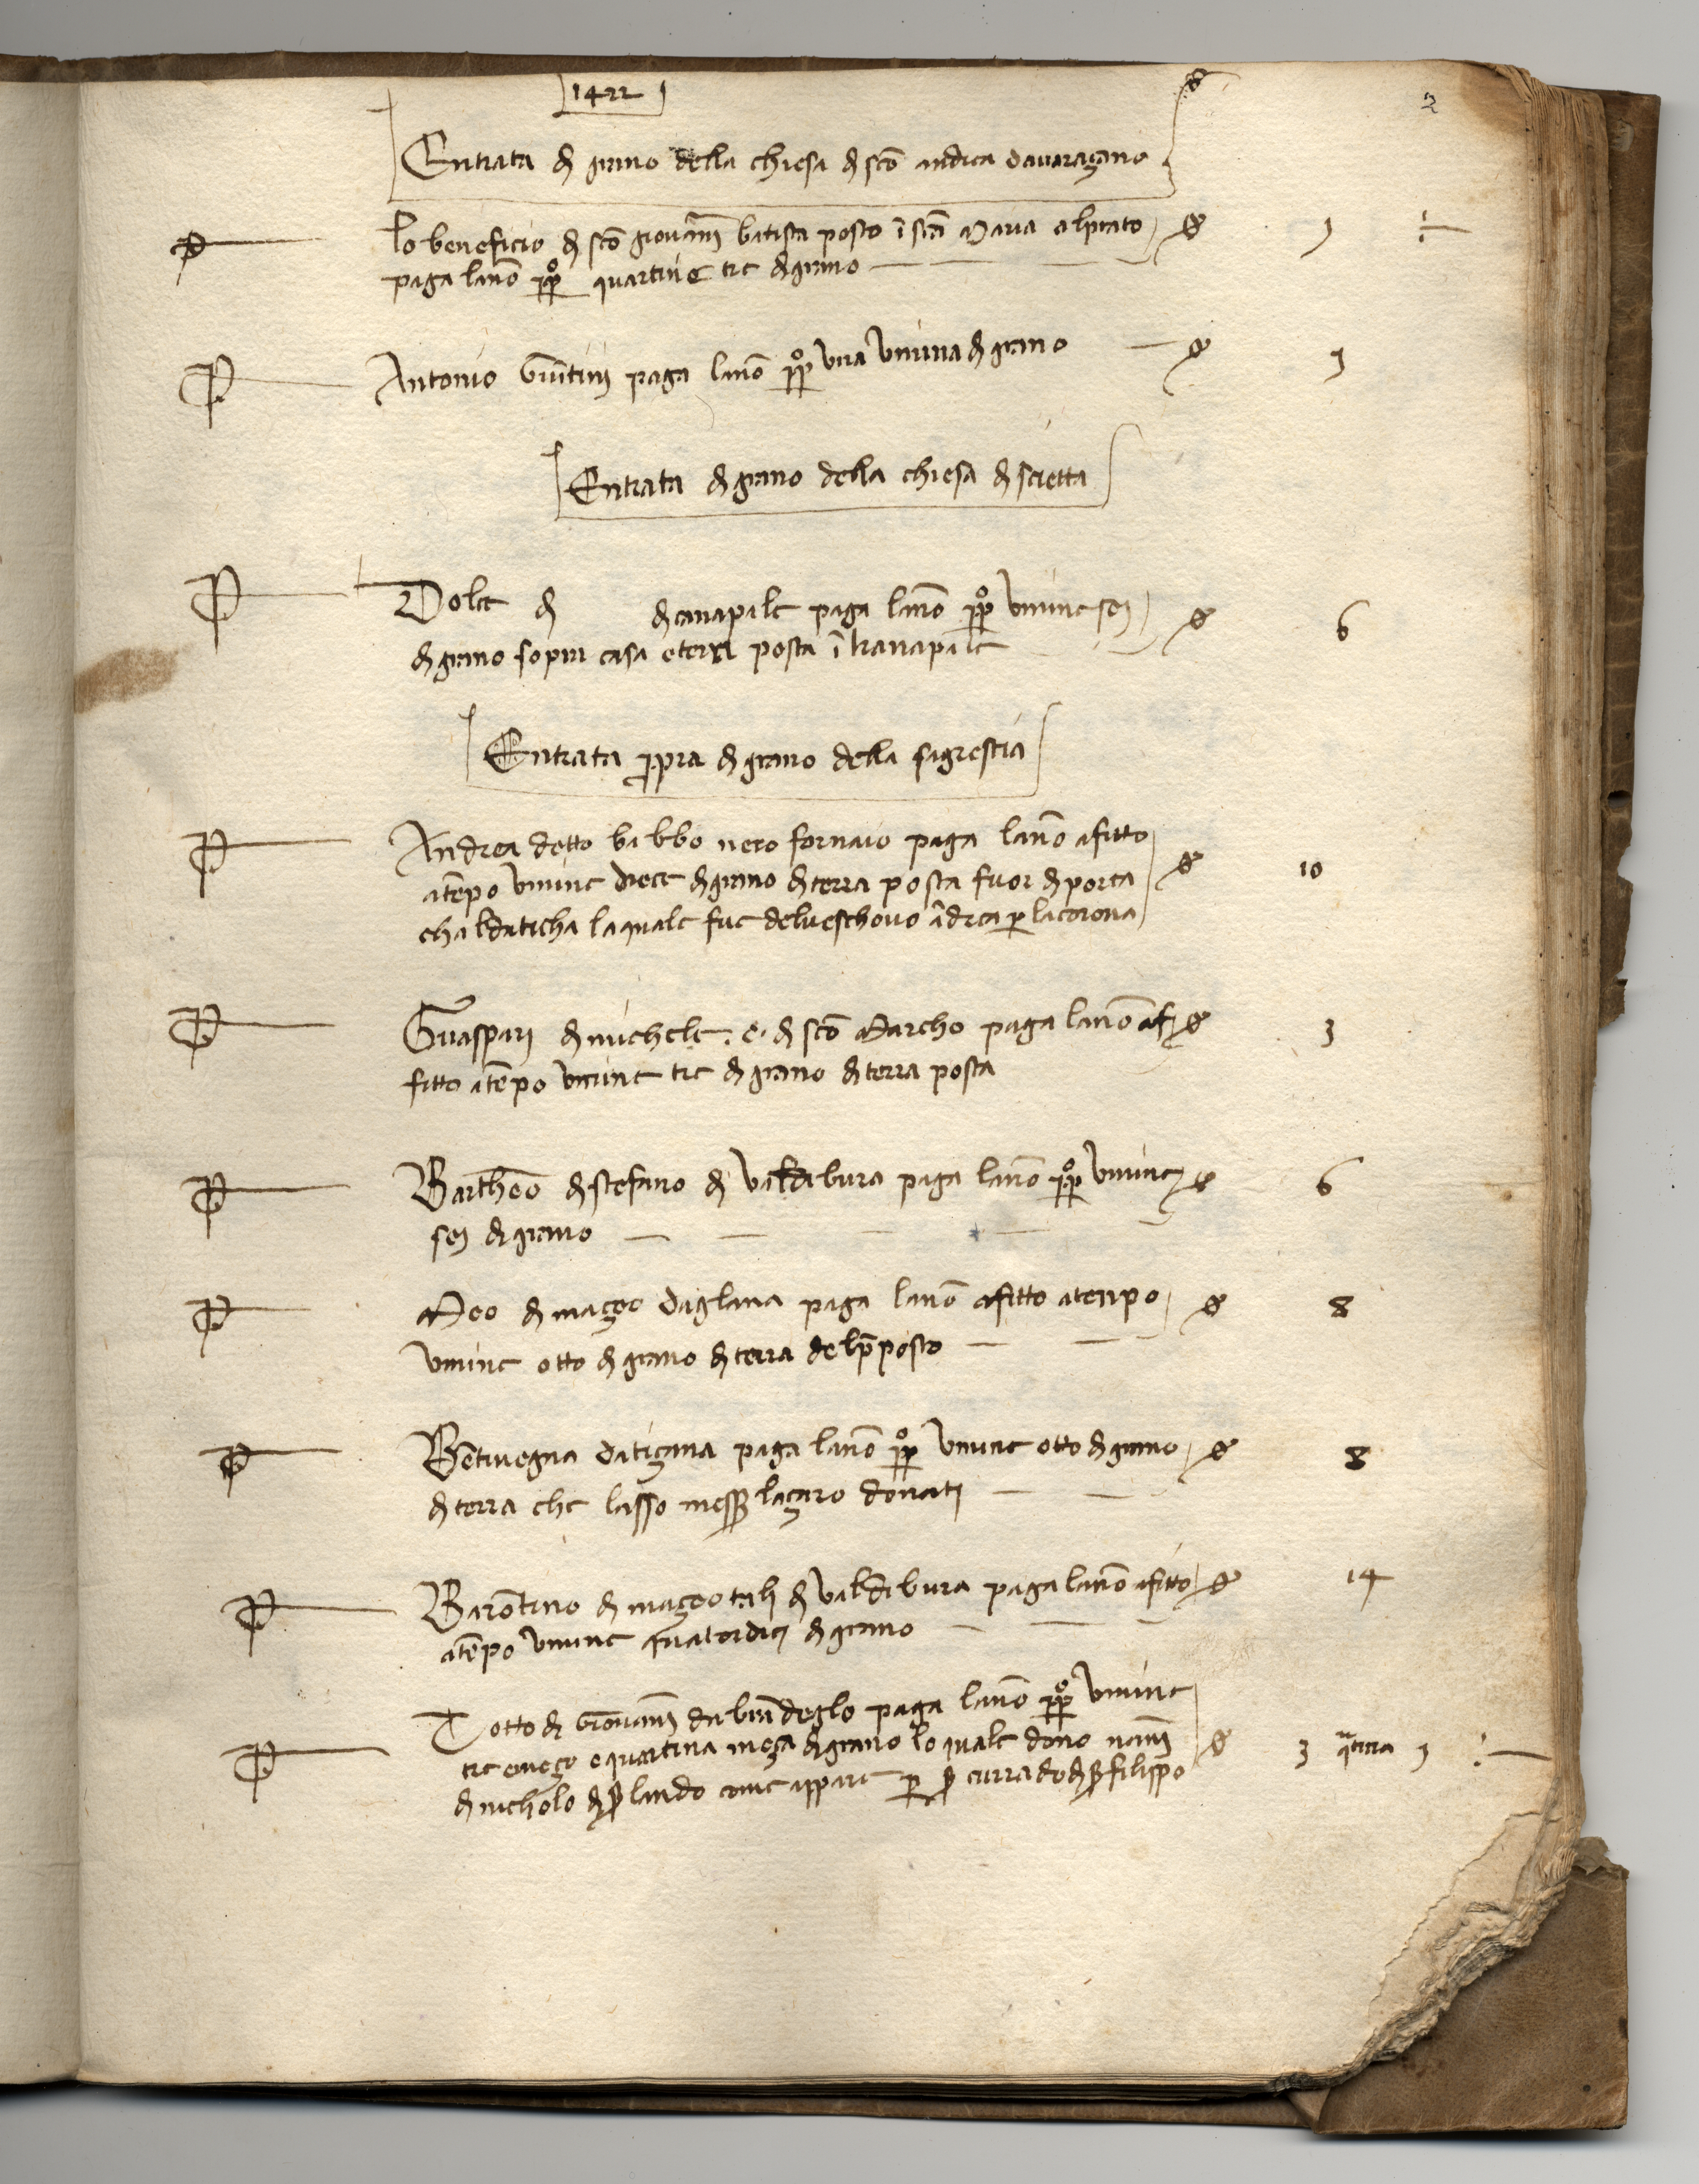 1422
2
Entrata di grano della chiesa di sco andrea davaraçano
lo beneficio di sco giovani batista posto i sca Maria alprato 1 ÷
paga lano ppo quartine tre di grano
Antonio paga lano ppo una Umina di grano 1
Entrata di grano della chiesa di scietta
Dolce di di canapale paga lano ppo umine sei 6
di grano sopra casa e terra posta i
Entrata ppra di grano della sagrestia
Andrea detto babbo nero fornaio paga lano afitto
atepo umine diece di grano di terra posta fuor di porta 10
chaldaticha laquale fue delveschovo adrea p lacorona
Guaspari di michele . c . di sco Marcho paga lano af 3
fitto atepo umine tre di grano di terra posta
Bartheo di stefano di valdibura paga lano ppo umine 6
sei di grano
Meo di maçeo daglana paga lano afitto atenpo 8
umine otto di grano di terra delpposto
Betivegna datiçana paga lano ppo umine otto di grano 8
di terra che lasso messer laçaro donati
Barotino di maçeo di valdibura paga lano afitto 14
atepo umine quatordici di grano
Totto di Giovani da paga lano ppo umine
tre e meço e quartina meça di grano lo quale dono nani 3 qrtina 1 ÷
di nicholo di ser lando come appare p ser currado di ser filippo